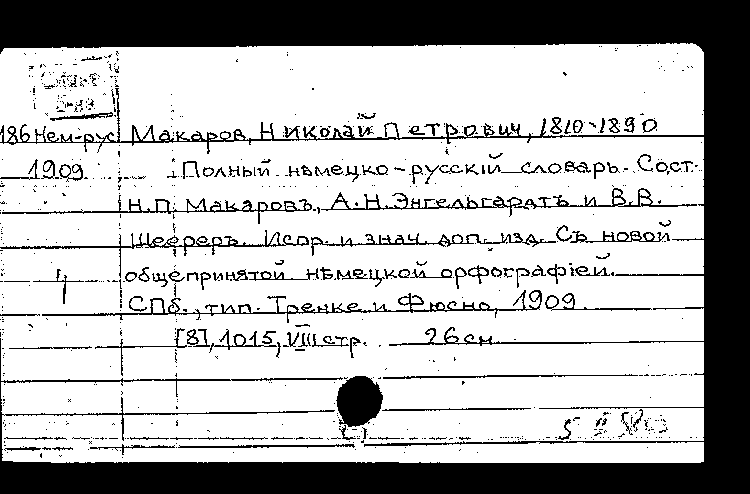 186 Нем-рус Макаров, Николай Петрович, 1810-1890
1909 Полный нѣмецко-русскій словарь. Сост.
Н.П. Макаровъ, А.Н. Энгельгардтъ и В.В.
Шерреръ. Испр. и знач. доп. изд. Съ новой
общепринятой нѣмецкой орфографіей.
СПб., тип. Тренке и Фюсно, 1909.
[8], 1015, VIII стр. 26 см
5 II 58